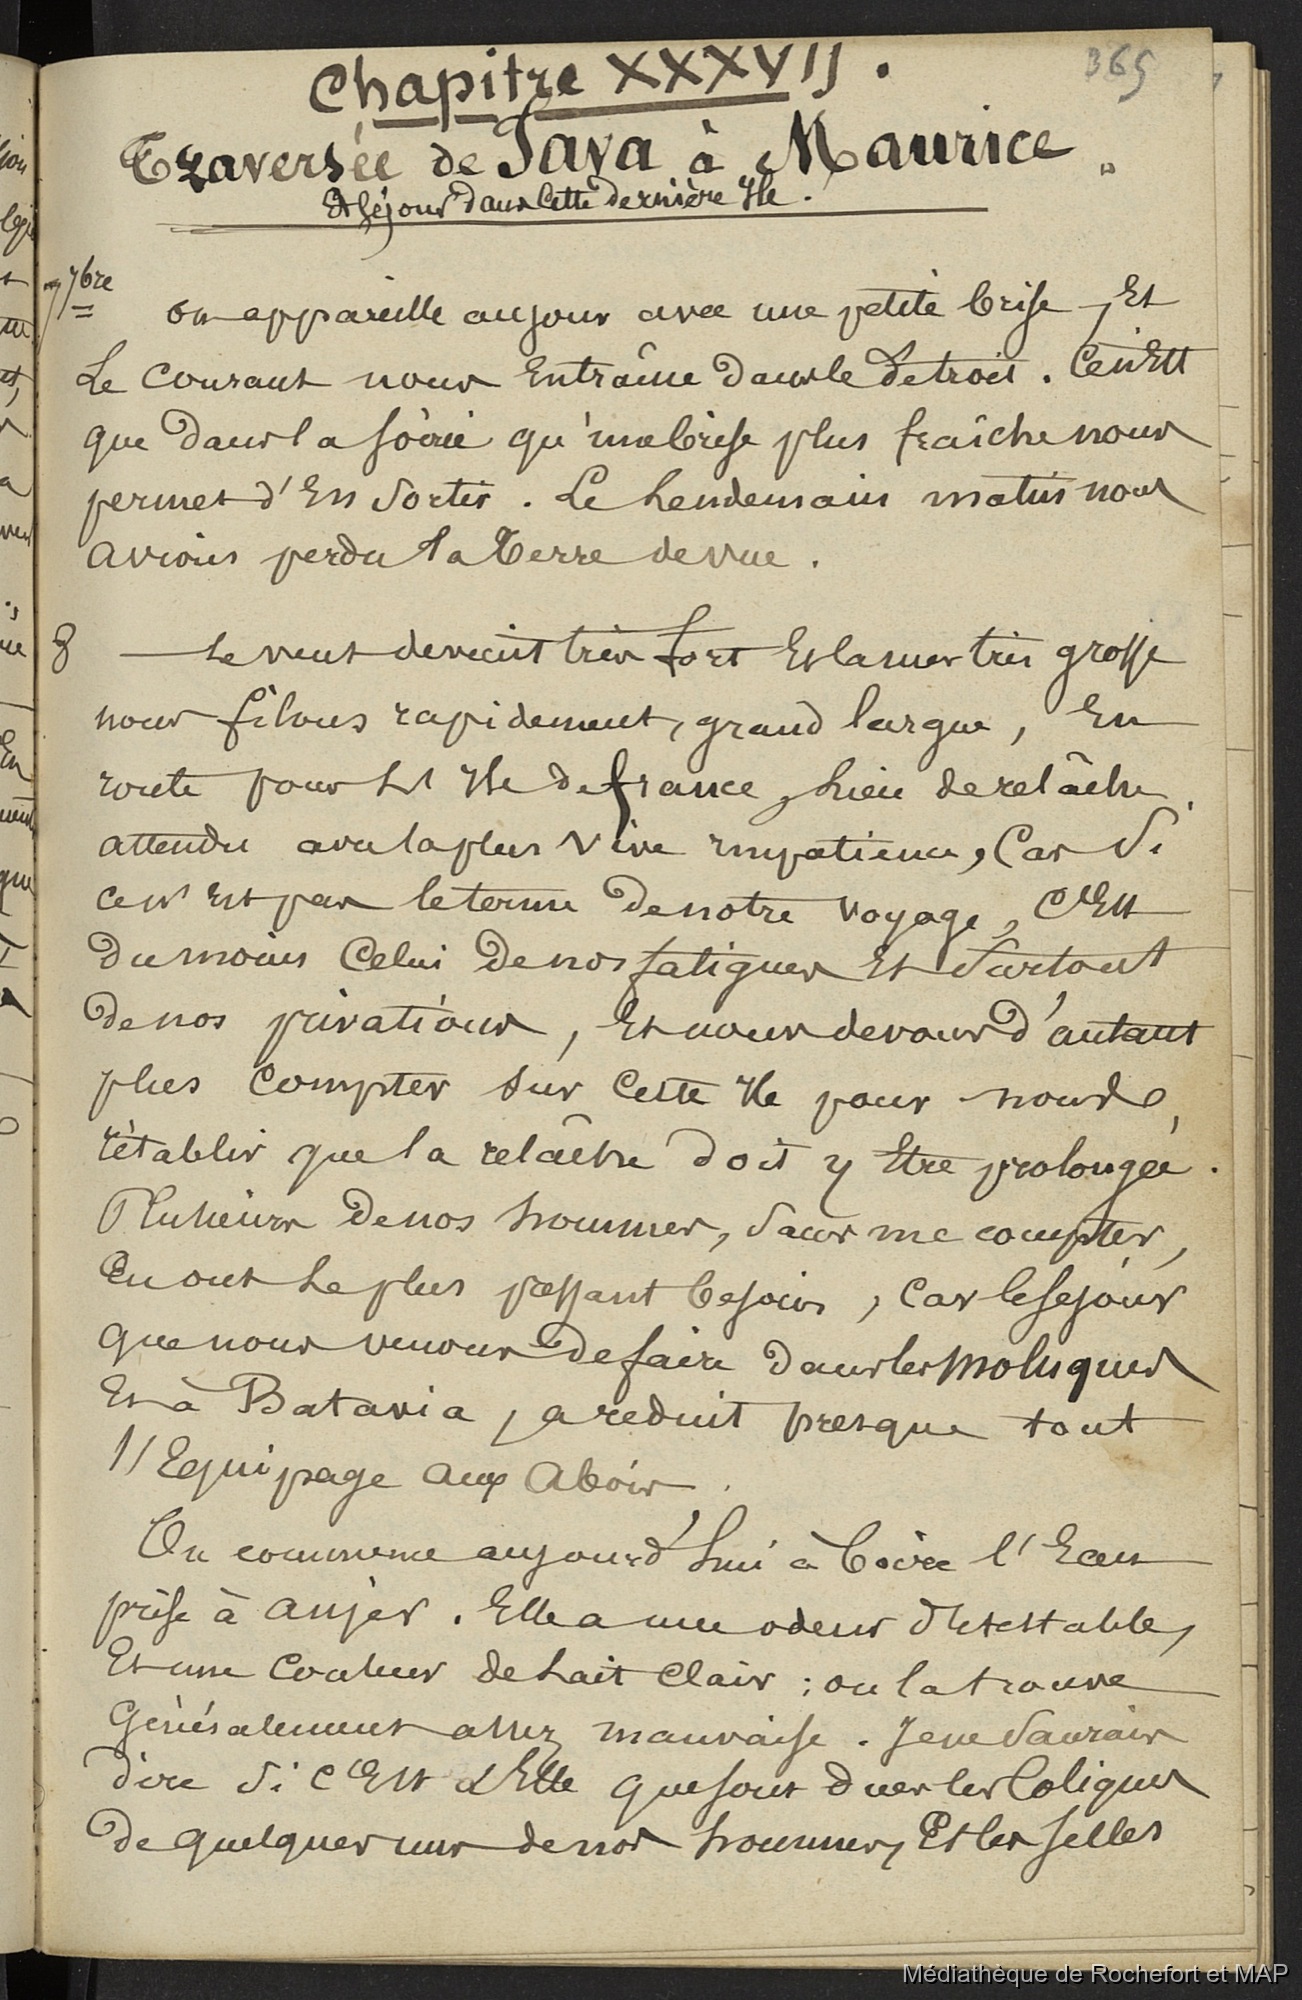 Chapitre XXXVII.
365
Traversée de Java à Maurice.
Et Séjour dans Cette dernière Ile.
7 7bre
on appareille au jour avec une petite brise, Et
Le Courant nous Entraîne dans le Detroit. Ce n'Est
que dans la soirée qu'une brise plus fraîche nous
permet d'En Sortir. Le Lendemain matin nous
avions perdu la terre de vue.
8 — Le vent devient très fort Et la mer très grosse
nous filons rapidement, grand largue, En
route pour L'Ile de france, Lieu de relâche
attendu avec la plus vive impatience, Car Si
ce n'Est pas le terme de notre voyage, C'Est
du moins Celui de nos fatigues Et Surtout
de nos privations, Et nous devons d'autant
plus Compter Sur Cette Ile pour nous
rétablir que la relâche doit y Etre prolongée.
Plusieurs de nos hommes, Sans me compter,
En ont Le plus pressant besoin, Car le séjour
que nous venons de faire dans les Moluques
Et à Batavia, a reduit presque tout
l'Equipage aux abois.
On commence aujourd'hui à boire l'Eau
prise à anjer. Elle a une odeur détestable,
Et une Couleur de Lait Clair ; on la trouve
Généralement assez mauvaise. Je ne Saurais
dire Si C'Est à Elle que sont dues les Coliques
de quelques uns de nos hommes, Et les selles
Médiathèque de Rochefort et MAP